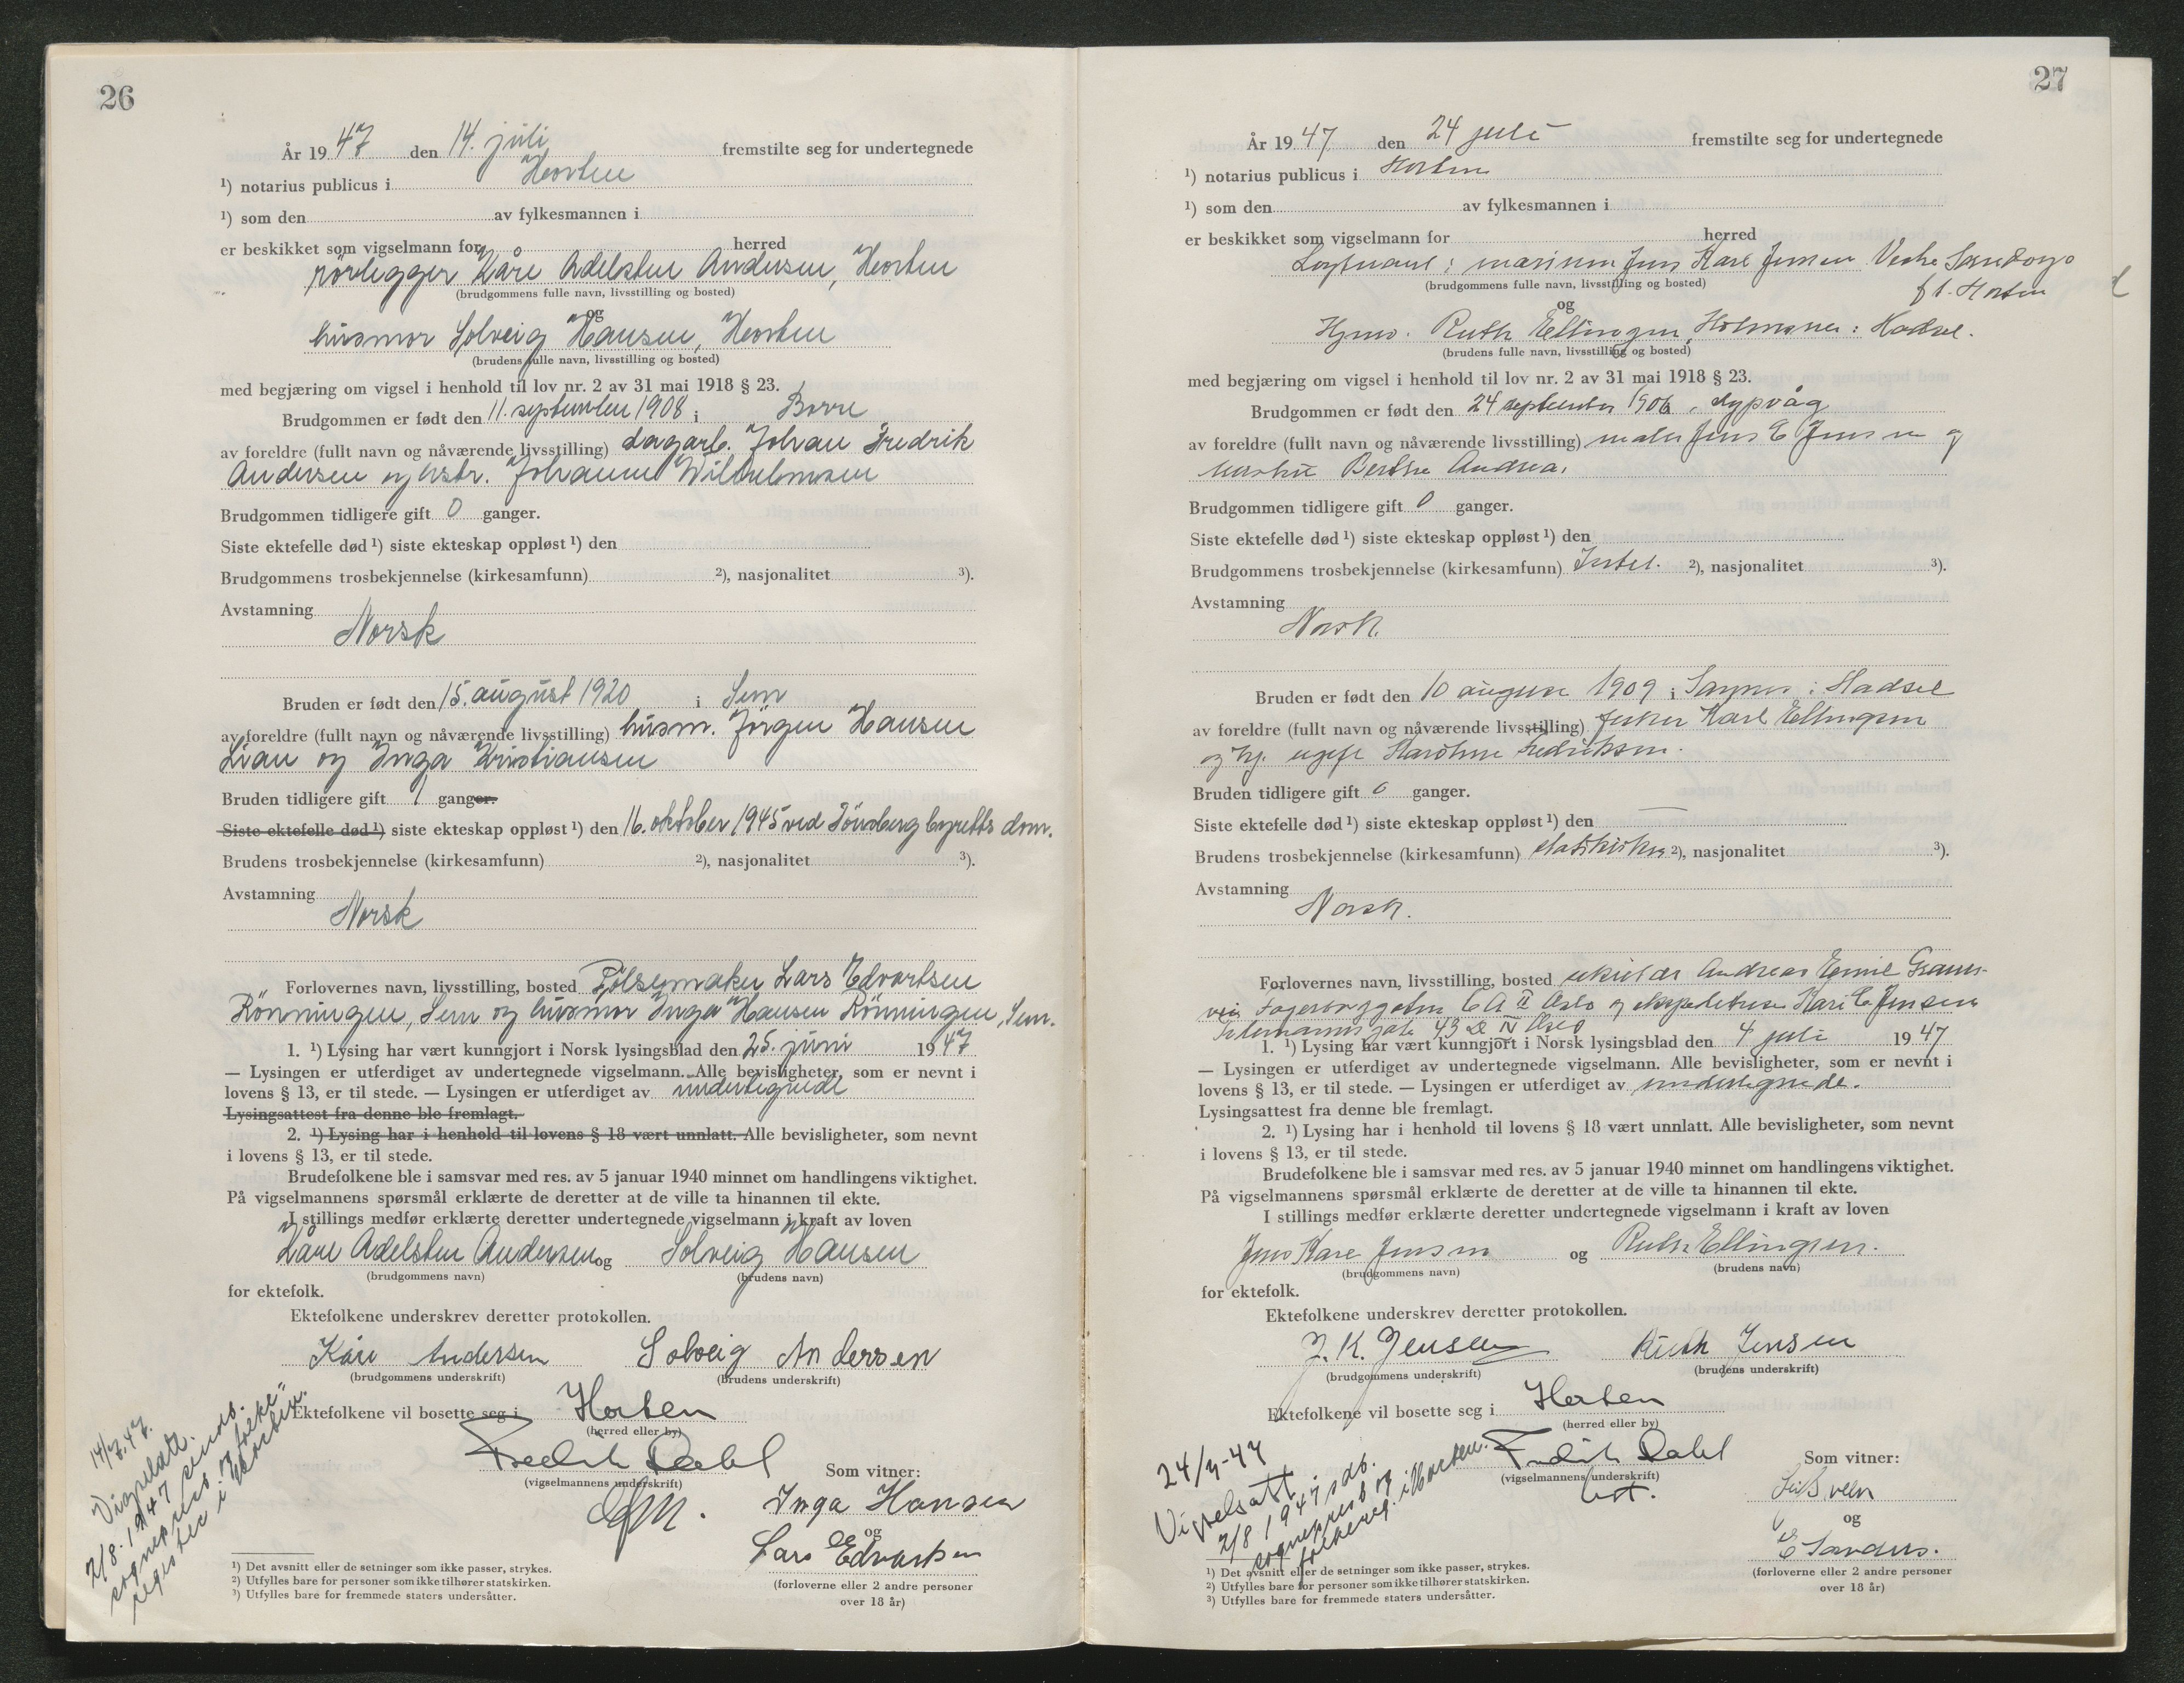 26
År 1947 den 14. juli fremstilte seg for undertegnede
¹) notarius publicus i Horten
¹) som den av fylkesmannen i
er beskikket som vigselmann for herred
rörlegger Kåre Adelsten Andersen, Horten
(brudgommens fulle navn, livsstilling og bosted)
og
husmor Solveig Hansen, Horten
(brudens fulle navn, livsstilling og bosted)
med begjæring om vigsel i henhold til lov nr. 2 av 31 mai 1918 § 23.
Brudgommen er født den 11. september 1908 i Borre
av foreldre (fullt navn og nåværende livsstilling) dagarb. Johan Fredrik
Andersen og hstr. Johanne Wilhelmsen
Brudgommen tidligere gift 0 ganger.
Siste ektefelle død ¹) siste ekteskap oppløst ¹) den
Brudgommens trosbekjennelse (kirkesamfunn) ²), nasjonalitet ³).
Avstamning
Norsk
Bruden er født den 15. august 1920 i Sem
av foreldre (fullt navn og nåværende livsstilling) husm. Jörgen Hansen
Lian og Inga Kristiansen
Bruden tidligere gift 1 ganger.
Siste ektefelle død ¹) siste ekteskap oppløst ¹) den 16. oktober 1945 ved Tönsberg byretts dom.
Brudens trosbekjennelse (kirkesamfunn) ²), nasjonalitet ³).
Avstamning
Norsk
Forlovernes navn, livsstilling, bosted Pölsemaker Lars Edvartsen
Rönningen, Sem og husmor Inga Hansen Rönningen, Sem.
1. ¹) Lysing har vært kunngjort i Norsk lysingsblad den 25. juni 1947
— Lysingen er utferdiget av undertegnede vigselmann. Alle bevisligheter, som er nevnt i
lovens § 13, er til stede. — Lysingen er utferdiget av undertegnede
Lysingsattest fra denne ble fremlagt.
2. ¹) Lysing har i henhold til lovens § 18 vært unnlatt. Alle bevisligheter, som nevnt
i lovens § 13, er til stede.
Brudefolkene ble i samsvar med res. av 5 januar 1940 minnet om handlingens viktighet.
På vigselmannens spørsmål erklærte de deretter at de ville ta hinannen til ekte.
I stillings medfør erklærte deretter undertegnede vigselmann i kraft av loven
Kåre Adelsten Andersen og Solveig Hansen
(brudgommens navn) (brudens navn)
for ektefolk.
Ektefolkene underskrev deretter protokollen.
Kåre Andersen Solveig Andersen
(brudgommens underskrift) (brudens underskrift)
Ektefolkene vil bosette seg i Horten
(herred eller by)
Fredrik Dahl
(vigselmannens underskrift)
Som vitner:
Inga Hansen
og
Lars Edvartsen
(forloverne eller 2 andre personer
over 18 år)
14/7.47.
Vigselatt.
2/8.1947 sends.
sogneprest og folke"
register i Horten.
¹) Det avsnitt eller de setninger som ikke passer, strykes.
²) Utfylles bare for personer som ikke tilhører statskirken.
³) Utfylles bare for fremmede staters undersåtter.
27
År 1947 den 24 juli fremstilte seg for undertegnede
¹) notarius publicus i Horten
¹) som den av fylkesmannen i
er beskikket som vigselmann for herred
Løytnant i marinen Jens Karl Jensen Vestre Sandøya
f.t. Horten
(brudgommens fulle navn, livsstilling og bosted)
og
Ruth Ellingsen, Holmsnes i Hadsel.
(brudens fulle navn, livsstilling og bosted)
med begjæring om vigsel i henhold til lov nr. 2 av 31 mai 1918 § 23.
Brudgommen er født den 24 september 1906 i dypvåg
av foreldre (fullt navn og nåværende livsstilling) maler Jens E Jensen og
hustru Berthe Andrea.
Brudgommen tidligere gift 0 ganger.
Siste ektefelle død ¹) siste ekteskap oppløst ¹) den
Brudgommens trosbekjennelse (kirkesamfunn) ²), nasjonalitet ³).
Avstamning
Norsk.
Bruden er født den 10 august 1909 i Sannes i Hadsel
av foreldre (fullt navn og nåværende livsstilling) fisker Karl Ellingsen
og hj. ugift Karoline Fredriksen.
Bruden tidligere gift 0 ganger.
Siste ektefelle død ¹) siste ekteskap oppløst ¹) den —
Brudens trosbekjennelse (kirkesamfunn) statskirken ²), nasjonalitet ³).
Avstamning
Norsk.
Forlovernes navn, livsstilling, bosted Andreas Emil
Fagerborggaten 6 A II Oslo og ekspeditrise Kari E Jensen
43 IV Oslo
1. ¹) Lysing har vært kunngjort i Norsk lysingsblad den 4 juli 1947
— Lysingen er utferdiget av undertegnede vigselmann. Alle bevisligheter, som er nevnt i
lovens § 13, er til stede. — Lysingen er utferdiget av undertegnede.
Lysingsattest fra denne ble fremlagt.
2. ¹) Lysing har i henhold til lovens § 18 vært unnlatt. Alle bevisligheter, som nevnt
i lovens § 13, er til stede.
Brudefolkene ble i samsvar med res. av 5 januar 1940 minnet om handlingens viktighet.
På vigselmannens spørsmål erklærte de deretter at de ville ta hinannen til ekte.
I stillings medfør erklærte deretter undertegnede vigselmann i kraft av loven
Jens Karl Jensen og Ruth Ellingsen.
(brudgommens navn) (brudens navn)
for ektefolk.
Ektefolkene underskrev deretter protokollen.
J. K. Jensen Ruth Jensen
(brudgommens underskrift) (brudens underskrift)
Ektefolkene vil bosette seg i Horten
(herred eller by)
Fredrik Dahl
(vigselmannens underskrift)
Som vitner:
og
(forloverne eller 2 andre personer
over 18 år)
24/7-47
Vigselsatt
2/8 1947 sds.
sogneprest og
folkereg. i Horten.
¹) Det avsnitt eller de setninger som ikke passer, strykes.
²) Utfylles bare for personer som ikke tilhører statskirken.
³) Utfylles bare for fremmede staters undersåtter.